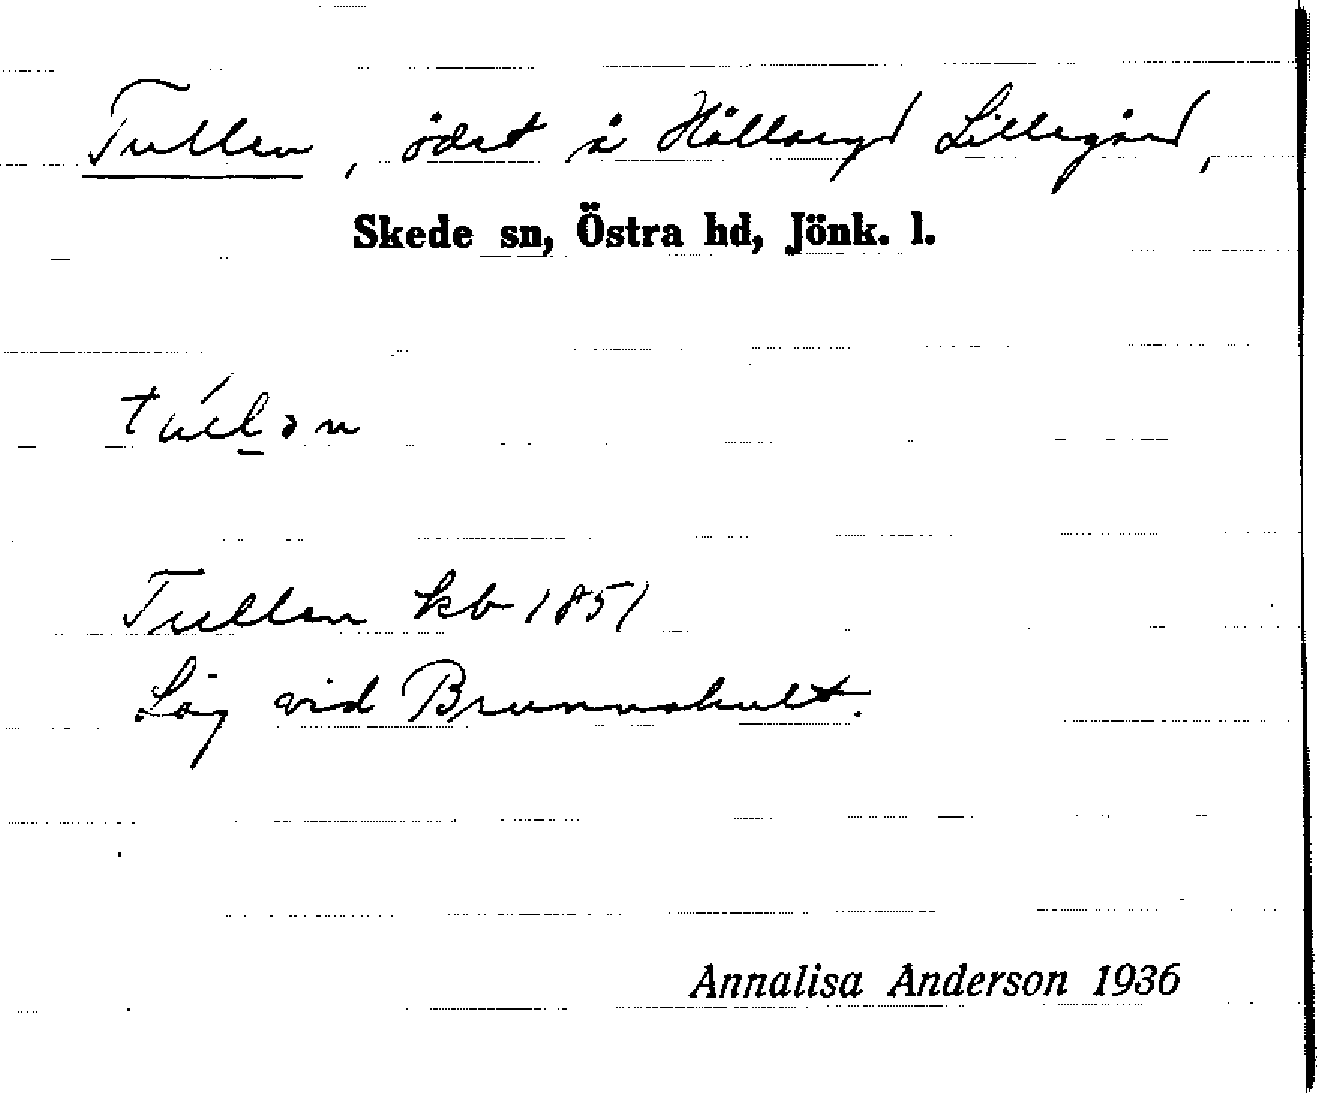 Tullen, ödet å Hällaryd Lillegård,
Skede sn, Östra hd, Jönk. l.
Tullen kb 1851
Låg vid Brunnshult.
Annalisa Anderson 1936